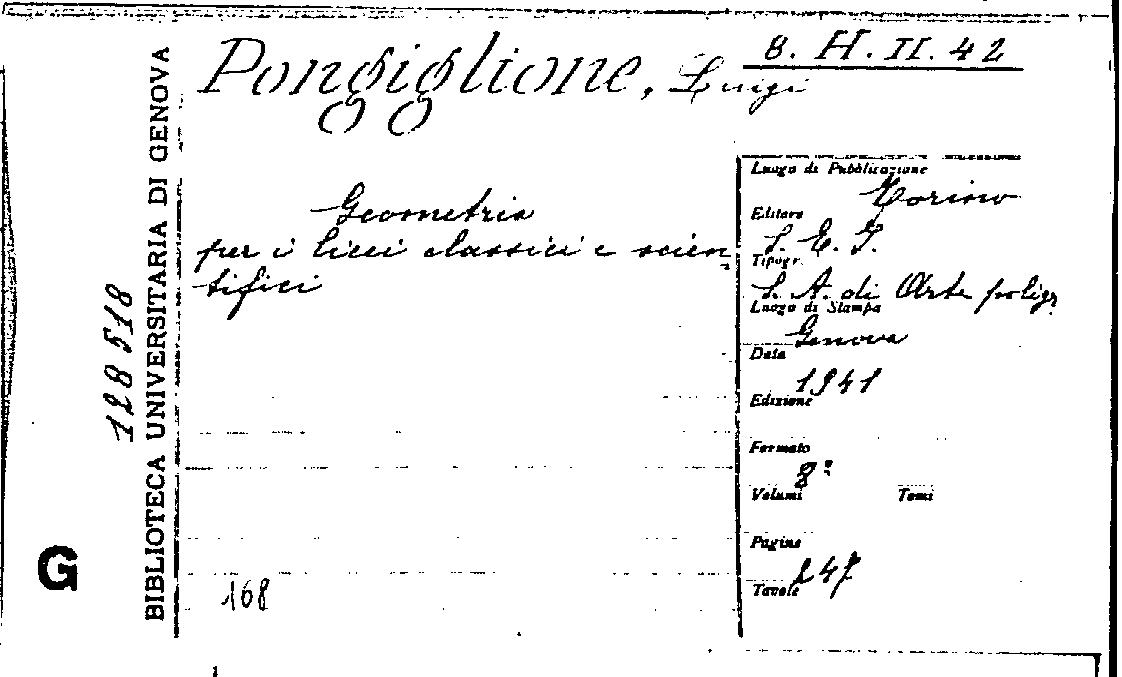 8. H. II. 42
Pongiglione, Luigi
BIBLIOTECA UNIVERSITARIA DI GENOVA
128518
G
Geometria
per i licei classici e scien-
tifici
168
Luogo di Pubblicazione
Torino
Editore
S. E. I.
Tipogr.
S. A. di Arte poligr.
Luogo di Stampa
Genova
Data
1941
Edizione
Formato
8°
Volumi Tomi
Pagine
247
Tavole